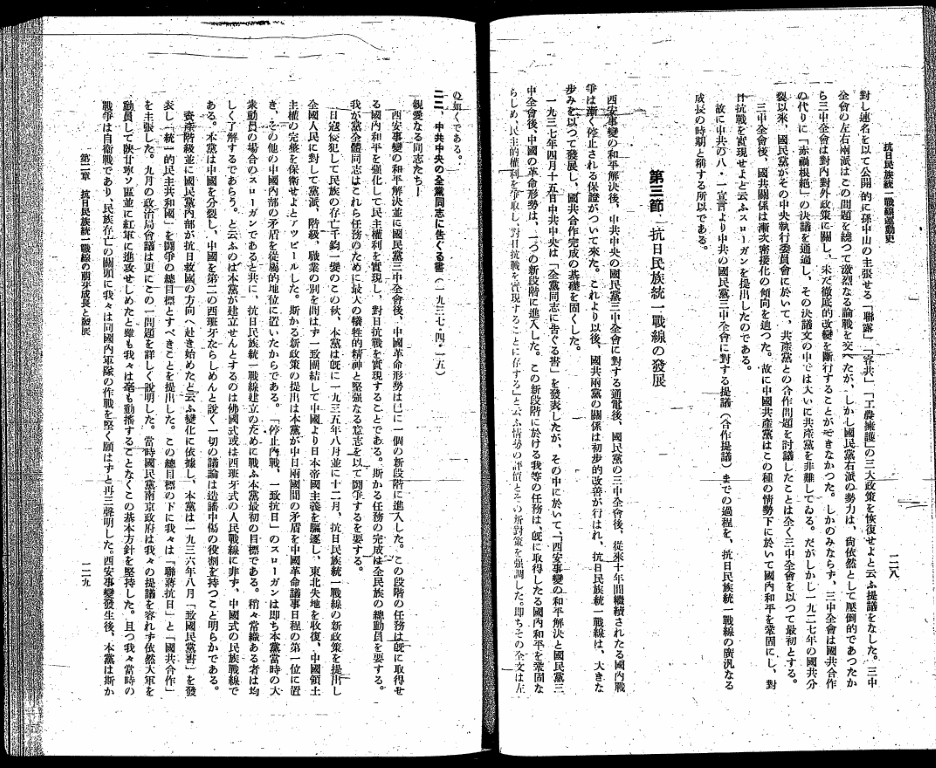 抗日民族統一戰線運動史
一二八
對し連名を以て公開的に孫中山の主張せる「聯露」、「容共」、「工農擁護」の三大政策を恢復せよと云ふ提議をなした。三中
全會の左右兩派はこの問題を繞つて激烈なる論戰を交へたが、しかし國民黨右派の勢力は、尙依然として壓倒的であつたか
ら三中全會は對內對外政策に關し、未だ徹底的改變を斷行することができなかつた。しかのみならず、三中全會は國共合作
の代りに「赤禍根絕」の決議を通過し、その決議文の中では大いに共產黨を非難してゐる。だがしかし一九二七年の國共分
裂以來、國民黨がその中央執行委員會に於いて、共產黨との合作問題を討議したことは全く三中全會を以つて最初とする。
三中全會後、國共關係は漸次密接化の傾向を辿つた。故に中國共產黨はこの種の情勢下に於いて國內和平を鞏固にし、對
日抗戰を實現せよと云ふスローガンを提出したのである。
故に中共の八・一宣言より中共の國民黨三中全會に對する提議(合作提議)までの過程を、抗日民族統一戰線の廣汎なる
成長の時期と稱する所以である。
第三節 抗日民族統一戰線の發展
西安事變の和平解決後、中共中央の國民黨三中全會に對する通電後、國民黨の三中全會後、從來十年間繼續されたる國內戰
爭は漸く停止される保證がついて來た。これより以後、國共兩黨の關係は初步的改善が行はれ、抗日民族統一戰線は、大きな
步みを以つて發展し、國共合作完成の基礎を固くした。
一九三七年四月十五日中共中央は「全黨同志に吿ぐる書」を發表したが、その中に於いて、「西安事變の和平解決と國民黨三
中全會後、中國の革命形勢は、一つの新段階に進入した。この新段階に於ける我等の任務は、既に取得したる國內和平を鞏固な
らしめ、民主的權利を爭取し、對日抗戰を實現することに存する」と云ふ情勢の評價とその所對策を強調した。卽ちその全文は左
の如くである。
二二、中共中央の全黨同志に吿ぐる書(一九三七・四・一五)
親愛なる同志たち！
西安事變の和平解決並に國民黨三中全會後、中國革命形勢は已に一個の新段階に進入した。この段階の任務は既に取得せ
る國內和平を強化して民主權利を實現し、對日抗戰を實現することである。斯かる任務の完成は全民族の總動員を要する。
我が黨全體同志はこれら任務のために最大の犧牲的精神と堅強なる意志を以て鬪爭するを要する。
日寇猴犯して民族の存亡千鈞一髮のこの秋、本黨は既に一九三五年八月並に十二月、抗日民族統一戰線の新政策を提出し
全國人民に對して黨派、階級、職業の別を問はず一致團結して中國より日本帝國主義を驅逐し、東北失地を收復、中國領土
主權の完整を保衞せよとアッピールした。斯かる新政策の提出は本黨が中日兩國間の矛盾を中國革命議事日程の第一位に置
き、その他の中國內部の矛盾を從屬的地位に置いたからである。「停止內戰、一致抗日」のスローガンは卽ち本黨當時の大
衆動員の場合のスローガンであると共に、抗日民族統一戰線建立のために戰ふ本黨最初の目標である。稍々常識ある者は均
しく了解するであらう。と云ふのは本黨が建立せんとするのは佛國式或は西班牙式の人民戰線に非ず、中國式の民族戰線で
ある。本黨は中國を分裂し、中國を第二の西班牙たらしめんと說く一切の議論は造謠中傷の役割を持つこと明らかである。
資產階級並に國民黨內部が抗日救國の方向へ赴き始めたと云ふ變化に依據し、本黨は一九三六年八月「致國民黨書」を發
表し「統一的民主共和國」を鬪爭の總目標とすべきことを提出した。この總目標の下に我々は「聯蔣抗日」と「國共合作」
を主張した。九月の政治局會議は更にこの問題を詳しく說明した。當時國民黨南京政府は我々の提議を容れず依然大軍を
動員して陝甘寧ソ區並に紅軍に進攻せしめたと雖も我々は毫も動搖することなくこの基本方針を堅持した。且つ我々當時の
戰爭は自衞戰であり、民族存亡の關頭に我々は同國內軍隊の作戰を堅く願はずと再三聲明した。西安事變發生後、本黨は斯か
第二章 抗日民族統一戰線の萠芽成長と發展
一二九